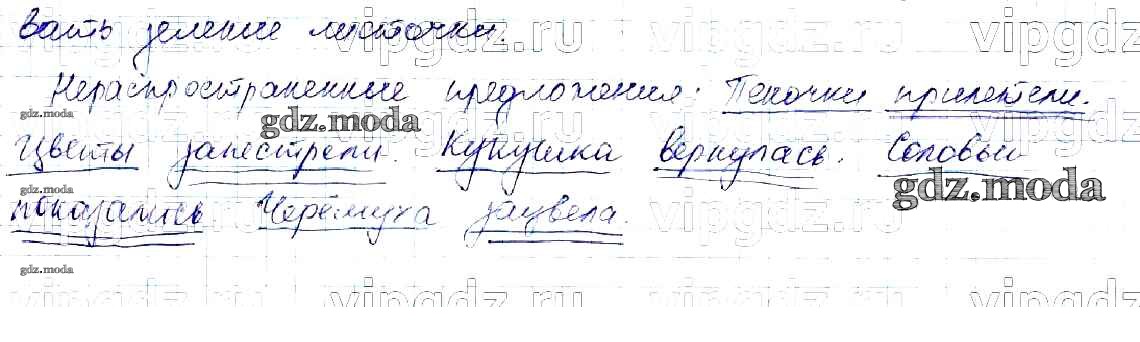 вать зелёные листочки.
Нераспространённые предложения: Пеночки прилетели.
Цветы запестрели. Кукушка вернулась. Соловьи
показались Черёмуха зацвела.
gdz.moda
gdz.moda
gdz.moda
gdz.moda
gdz.moda
vipgdz.ru
vipgdz.ru